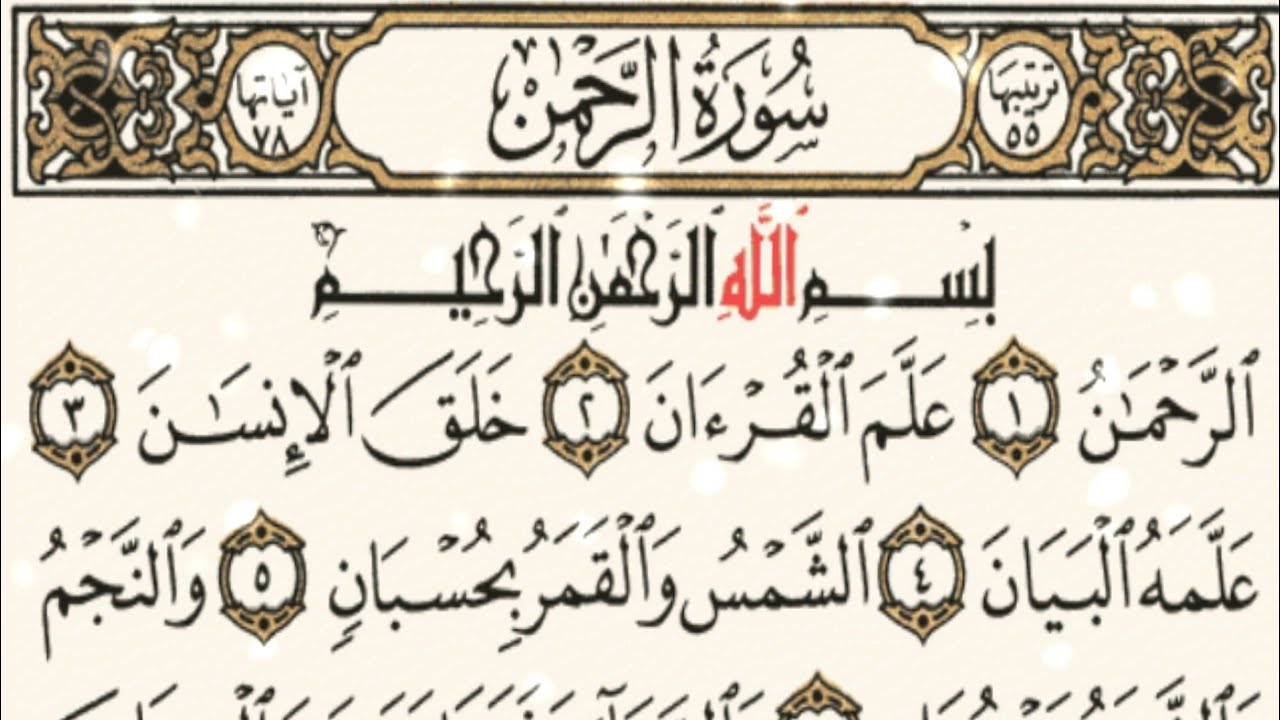 ترتيبها ٥٥ سُورَةُ الرَّحْمٰن آياتها ٧٨
بِسْمِ ٱللَّهِ ٱلرَّحْمَٰنِ ٱلرَّحِيمِ
ٱلرَّحْمَٰنُ ١ عَلَّمَ ٱلْقُرْءَانَ ٢ خَلَقَ ٱلْإِنسَٰنَ ٣
عَلَّمَهُ ٱلْبَيَانَ ٤ ٱلشَّمْسُ وَٱلْقَمَرُ بِحُسْبَانٍ ٥ وَٱلنَّجْمُ